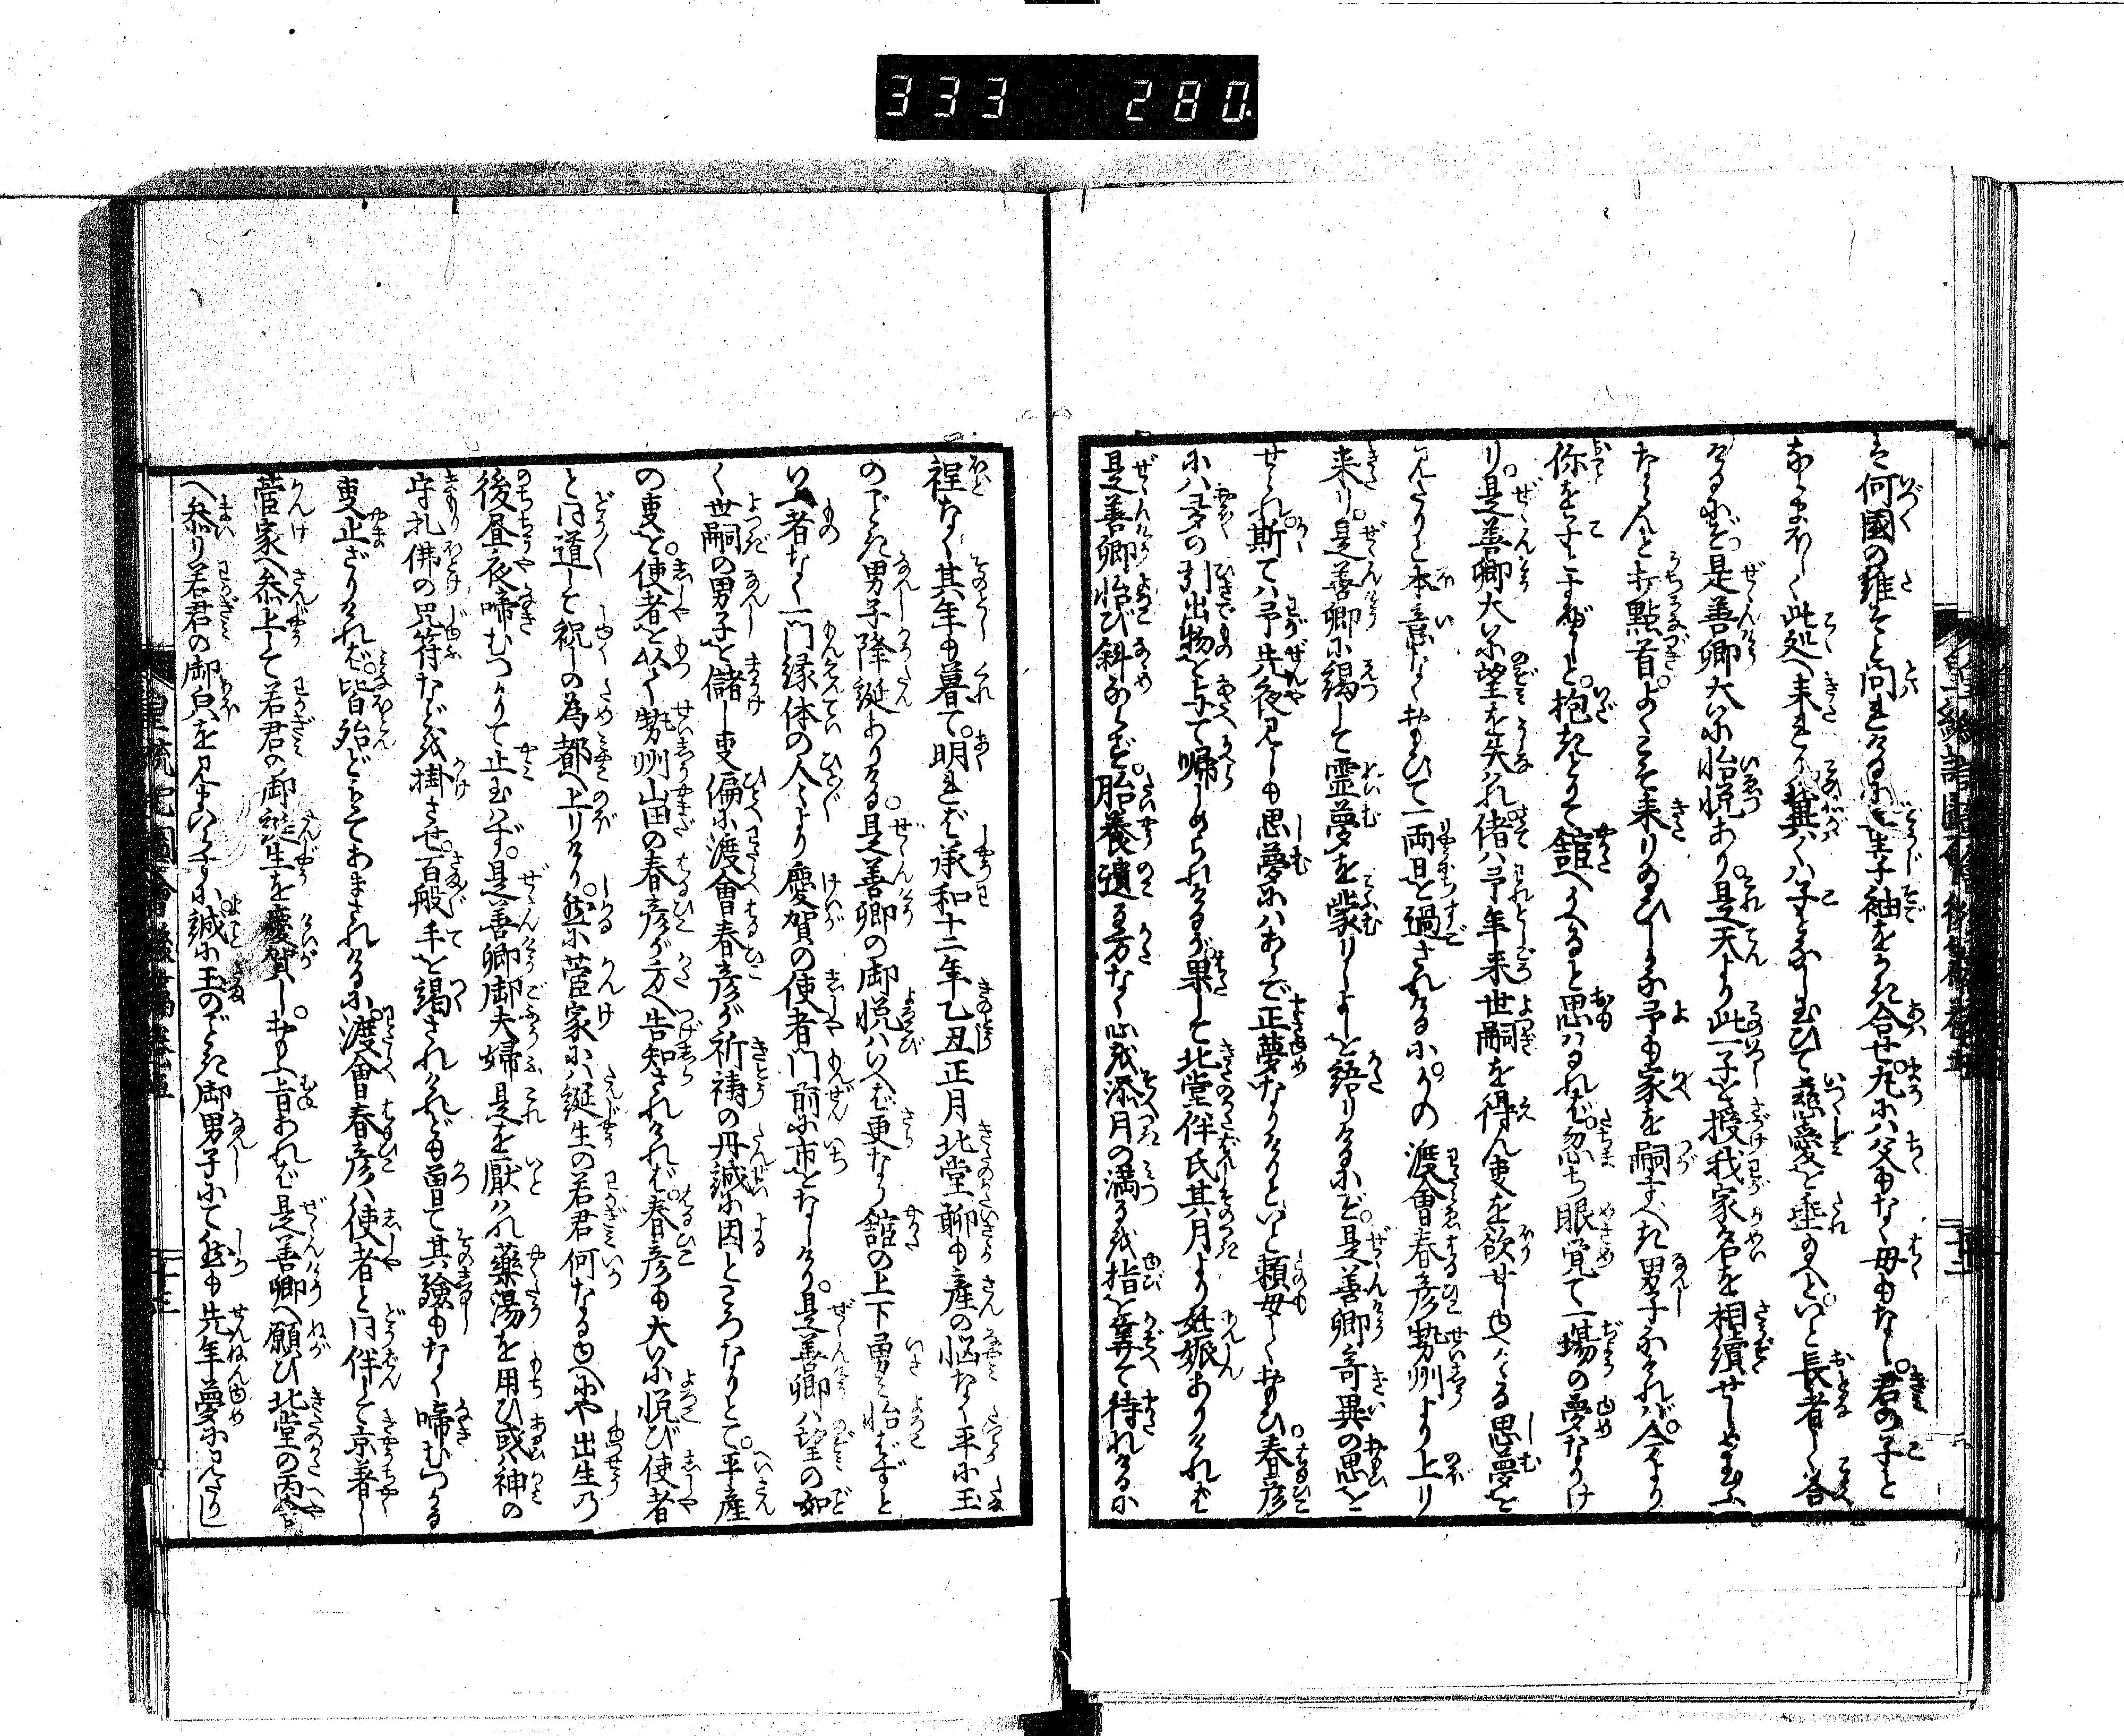 333 280
は何國の誰ぞと問れけるに童子袖をかき合せ九には父もなく母もなし君の子と
ならまほしく此処へ来れり冀くは子となし玉ひて慈愛を垂れ玉へといと長者しく答
けるにぞ是善卿大いに怡悦あり是天より此一子を授我家名を相續せしめ玉ふ
ならんと打點首よくこそ来り玉ひしよな予も家を嗣すべき男子なければ今より
你を子とすべしと抱きとりて舘へかへると思はるれば忽ち眼覚て一場の夢なりけ
り是善卿大いに望を失はれ偖は予年来世嗣を得ん事を欲せしゆへかゝる思夢を
見たりと本意なくおもひて一両日を過されけるにかの渡會春彦勢州より上り
来り是善卿に謁して霊夢を蒙りしよしを語りけるにぞ是善卿奇異の思を
せられ斯ては予先夜見しも思夢にはあらで正夢なりけりといと頼母しくおもひ春彦
にハ多の引出物を与て帰しめられけるが果して北堂伴氏其月より妊娠ありければ
是善卿怡び斜ならず胎養遺る方なく心を添月の満るを指を算て待れけるに
程なく其年も暮て明れば承和十二年乙丑正月北堂聊も産の悩なく平に玉
のごとき男子降誕ありける是善卿の御悦ハいへば更なり舘の上下勇み怡ばずと
いふ者なく一門縁体の人々より慶賀の使者門前に市をなしけり是善卿ハ望の如
く世嗣の男子を儲し事偏に渡會春彦が祈祷の丹誠に因ところなりとて平産
の事を使者を以て勢州山田の春彦が方へ告知されければ春彦も大いに悦び使者
と同道して祝しの為都へ上りけり然に菅家にハ誕生の若君何なるゆへにや出生の
後昼夜啼むつかりて止玉はず是善卿御夫婦是を厭はれ藥湯を用ひ或ハ神の
守札佛の咒符などを掛させ百般手を竭されけれども曽て其驗もなく啼むつかる
事止ざりければ皆殆どもてあまされけるに渡會春彦ハ使者と同伴して京着し
菅家へ参上して若君の御誕生を慶賀しおもふ旨あれば是善卿へ願ひ北堂の丙舎
へ参り若君の御皃を見まいらすに誠に玉のごとき御男子にて然も先年夢に見たりし